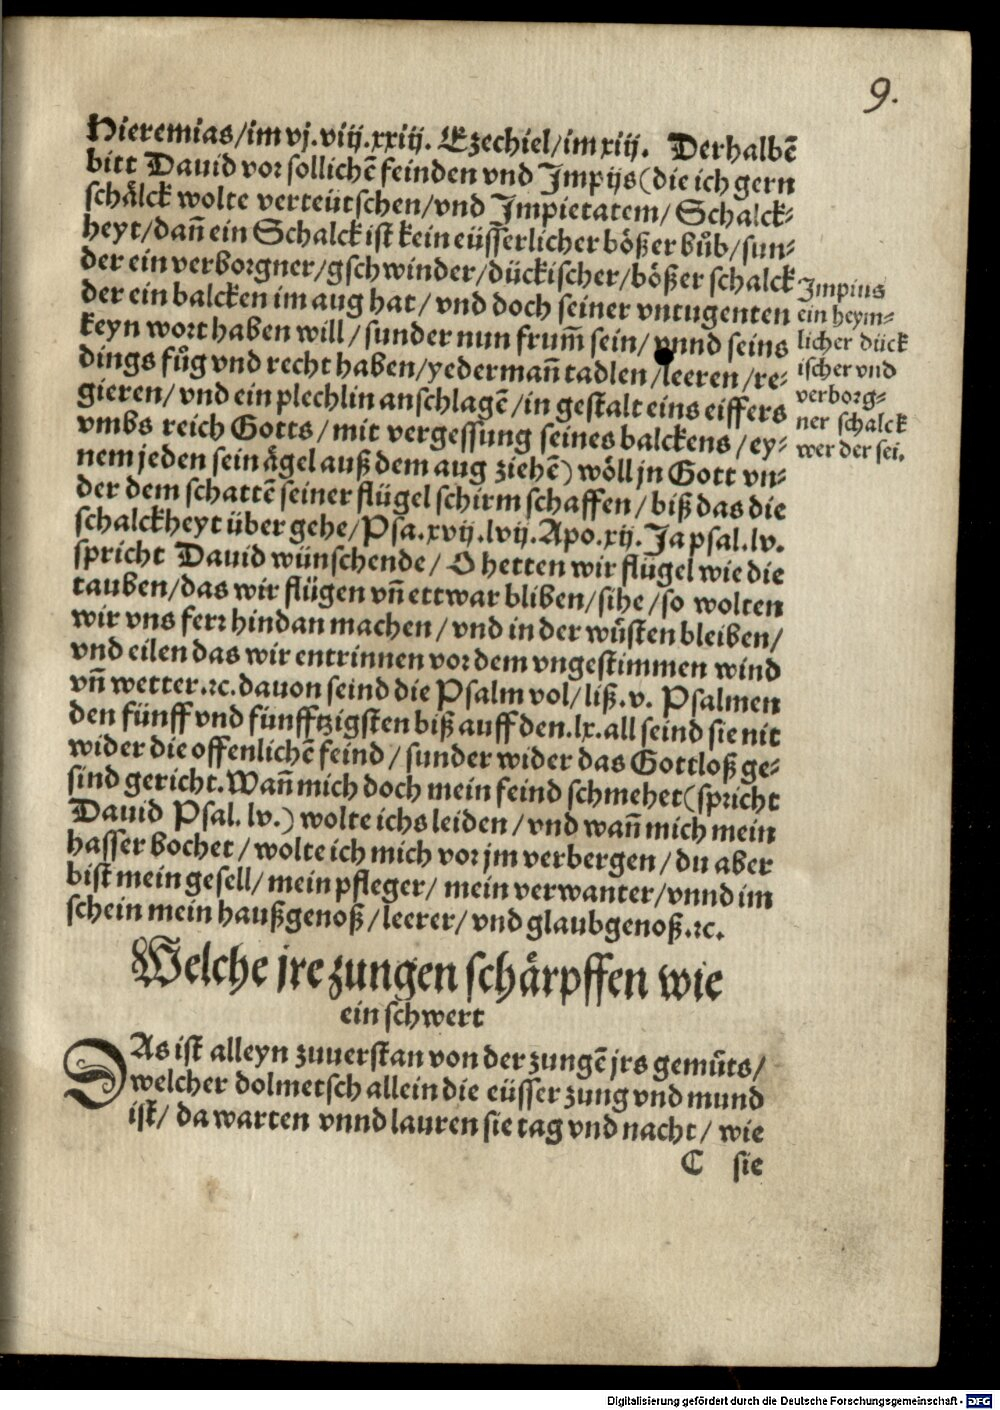 9.
Hieremias/im vj.viij.xxiij. Ezechiel/im xiij. Derhalbē
bitt Dauid vor sollichē feinden vnd Impijs (die ich gern
schälck wolte verteütschen/vnd Impietatem/ Schalck⸗
heyt/dañ ein Schalck ist kein eüsserlicher bößer bůb/sun⸗
der ein verborgner/gschwinder/dückischer/bößer schalck
der ein balcken im aug hat/ vnd doch seiner vntugenten
keyn wort haben will/ sunder nun frum̄ sein/ vnnd seins
dings fůg vnd recht haben/yedermañ tadlen/leeren/re⸗
gieren/ vnd ein plechlin anschlagē/in gestalt eins eiffers
vmbs reich Gotts/ mit vergessung seines balckens/ey⸗
nem jeden sein ägel auß dem aug ziehē) wöll jn Gott vn⸗
der dem schattē seiner flügel schirm schaffen/ biß das die
schalckheyt über gehe/Psa.xvij.lvij.Apo.xij. Ja psal.lv.
spricht Dauid wünschende/ O hetten wir flügel wie die
tauben/das wir flügen vñ ettwar bliben/sihe/so wolten
wir vns ferr hindan machen/ vnd in der wůsten bleiben/
vnd eilen das wir entrinnen vor dem vngestimmen wind
vñ wetter.ꝛc.dauon seind die Psalm vol/ liß.v. Psalmen
den fünff vnd fünfftzigsten biß auff den.lx.all seind sie nit
wider die offenlichē feind/ sunder wider das Gottloß ge⸗
sind gericht.Wañ mich doch mein feind schmehet(spricht
Dauid Psal. lv.) wolte ichs leiden/ vnd wañ mich mein
hasser bochet/ wolte ich mich vor jm verbergen/ du aber
bist mein gesell/ mein pfleger/ mein verwanter/vnnd im
schein mein haußgenoß/leerer/ vnd glaubgenoß.ꝛc.
Impius
ein heym⸗
licher dück
ischer vnd
verborg⸗
ner schalck
wer der sei.
Welche jre zungen schärpffen wie
ein schwert
DAs ist alleyn zuuerstan von der zungē jrs gemůts/
welcher dolmetsch allein die eüsser zung vnd mund
ist/ da warten vnnd lauren sie tag vnd nacht/ wie
C sie
Digitalisierung gefördert durch die Deutsche Forschungsgemeinschaft - DFG